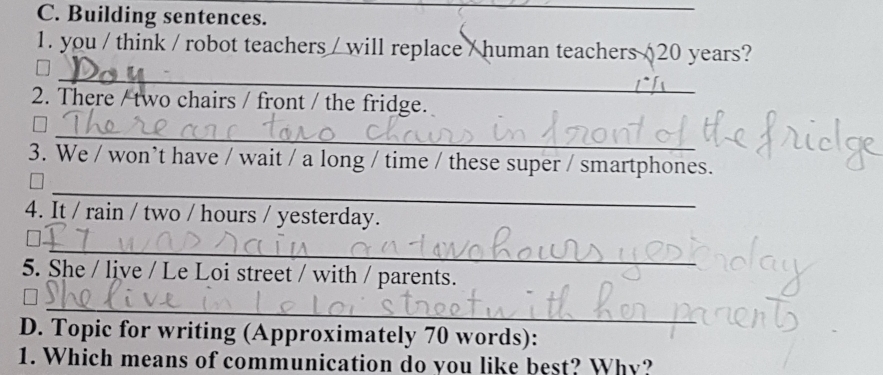 C. Building sentences.
1. you / think / robot teachers / will replace human teachers 20 years?
in
Do y
2. There / two chairs / front / the fridge.
There are two chairs in front of the fridge
3. We / won't have / wait / a long / time / these super / smartphones.
4. It / rain / two / hours / yesterday.
IT was rain two hours yesterday
5. She / live / Le Loi street / with / parents.
She live in Le Loi street with her parents.
D. Topic for writing (Approximately 70 words):
1. Which means of communication do you like best? Why?